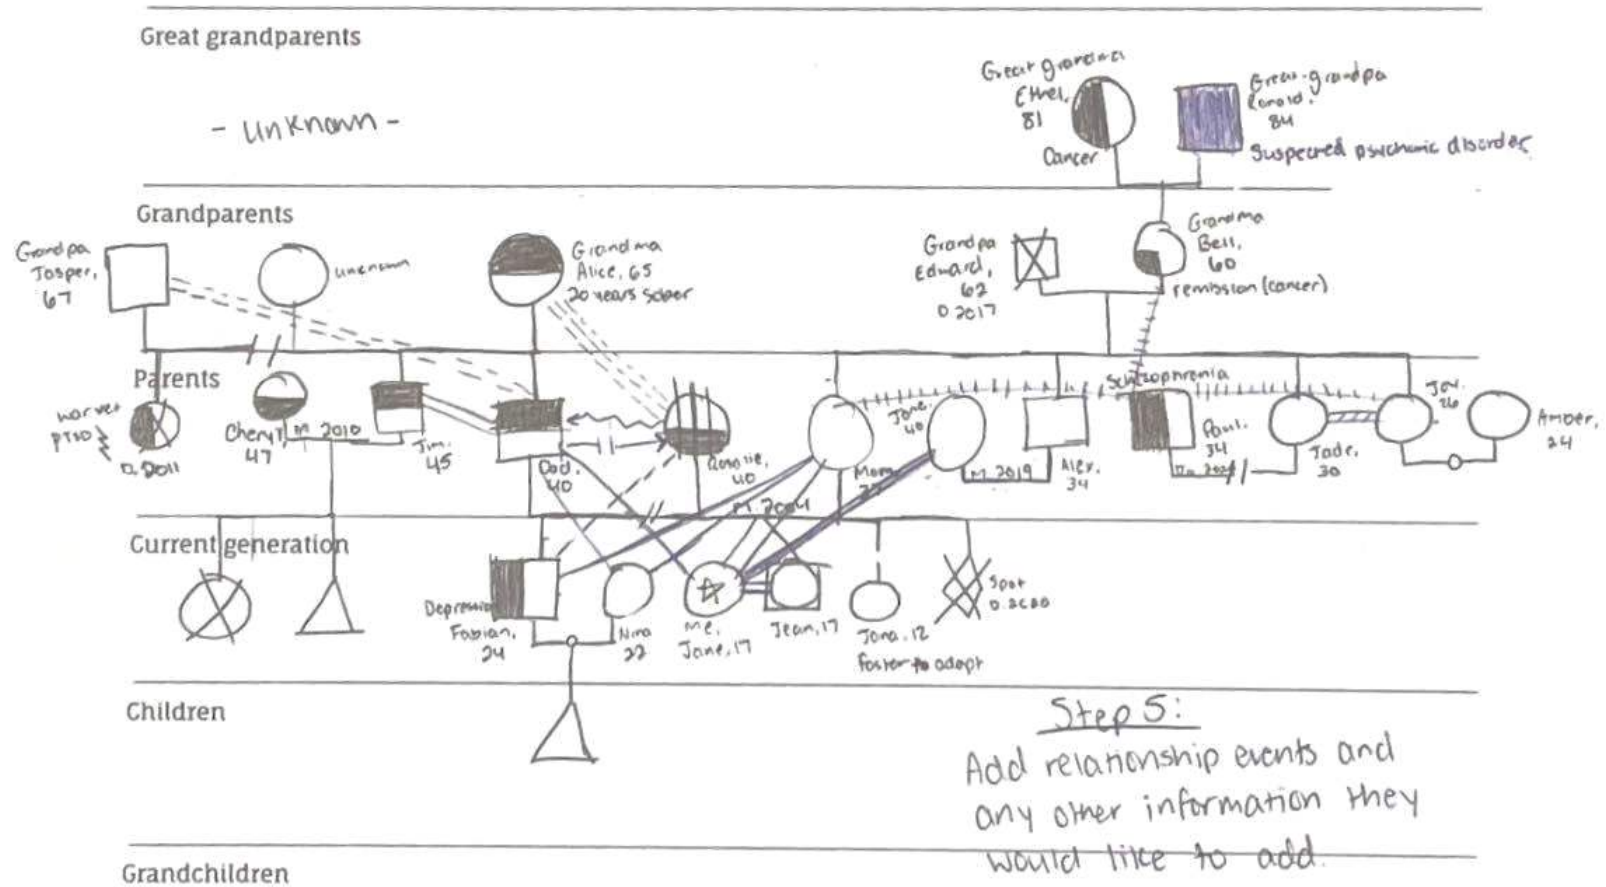 Great grandparents
- unknown -
Great grandma
Ethel,
81
Cancer
Great-grandpa
Ronald,
84
Suspected psychotic disorder
Grandparents
Grandpa
Jasper,
67
unknown
Grandma
Alice, 65
20 years sober
Grandpa
Edward,
62
D.2017
Grandma
Bell,
60
remission (cancer)
Parents
war vet
PTSD
D.2011
Cheryl,
47
M 2010
Jim,
45
Dad,
40
Rosalie,
40
Mom,
M. 2004
Jane,
40
M. 2019
Alex,
34
Schizophrenia
Paul,
34
Jade,
30
Joy,
26
Amber,
24
Current generation
Depression
Fabian,
24
Nina
22
Me,
Jane, 17
Jean, 17
Jana, 12
Foster to adopt
Spot
D.2020
Children
Step 5:
Add relationship events and
any other information they
would like to add.
Grandchildren